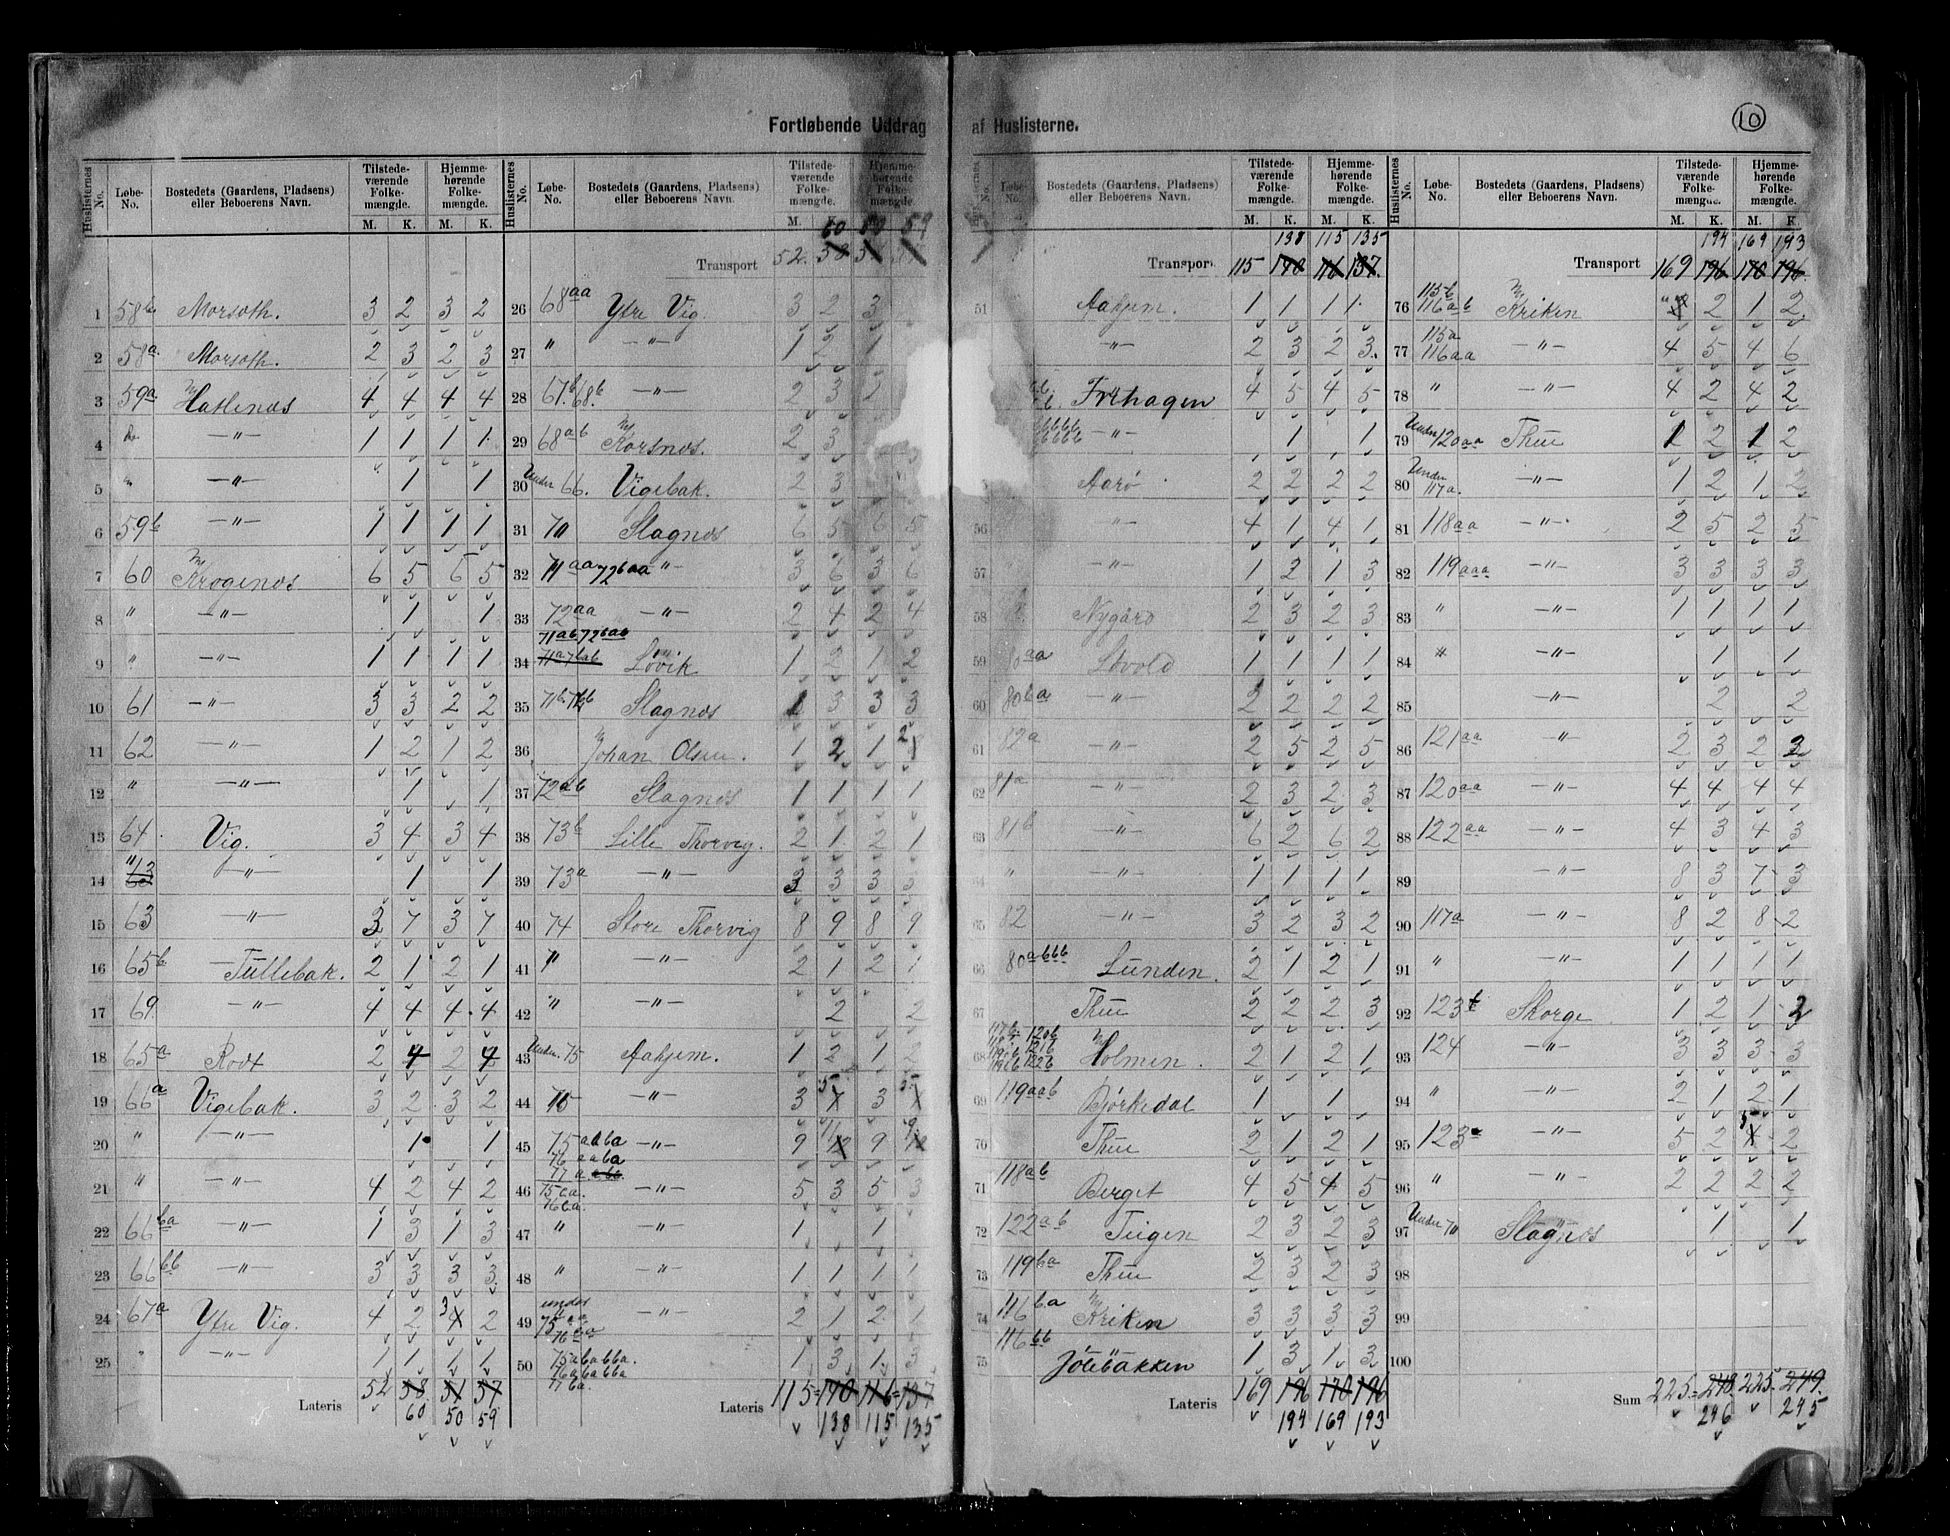 Fortløbende Uddrag af Huslisterne.
10
Huslisternes No. Løbe-No. Bostedets (Gaardens, Pladsens) eller Beboerens Navn. Tilstedeværende Folkemængde. M. K. Hjemmehørende Folkemængde. M. K.
1 58b Morsoth. 3 2 3 2
2 58a Morsoth. 2 3 2 3
3 59a Hatlenæs 4 4 4 4
4 do —"— 1 1 1 1
5 " —"— 1 1
6 59b —"— 1 1 1 1
7 60 Krogenæs 6 5 6 5
8 " —"— 1 1
9 " —"— 1 1 1 1
10 61 —"— 3 3 2 2
11 62 —"— 1 2 1 2
12 " —"— 1 1
13 64 Vig. 3 4 3 4
14 —"— 1 1
15 63 —"— 3 7 3 7
16 65b Tullebak. 2 1 2 1
17 69 —"— 4 4 4 4
18 65a Rodt 2 4 2 4
19 66a Vigebak. 3 2 3 2
20 " —"— 1 1
21 " —"— 4 2 4 2
22 66ba —"— 1 3 1 3
23 66bb —"— 3 3 3 3
24 67a Ytre Vig. 4 2 3 2
25 " —"— 1 1 1 1
Lateris 52 58 51 57
60 50 59
Huslisternes No. Løbe-No. Bostedets (Gaardens, Pladsens) eller Beboerens Navn. Tilstedeværende Folkemængde. M. K. Hjemmehørende Folkemængde. M. K.
60 50 59
Transport 52. 58
26 68aa Ytre Vig. 3 2 3
27 " —"— 1 2 1
28 67b 68b —"— 2 3 2
29 68ab Korsnæs. 2 3
30 Under 66. Vigebak. 2 3
31 70 Slagnæs 6 5 6 5
32 71aa 72baa —"— 3 6 3 6
33 72aa —"— 2 4 2 4
34 71ab 72bab Lövik 1 2 1 2
35 71b Slagnæs 1 3 3 3
36 Johan Olsen. 1 2 1 2
37 72ab Slagnæs 1 1 1 1
38 73b Lille Thorvig. 2 1 2 1
39 73a —"— 3 3 3 3
40 74 Store Thorvig 8 9 8 9
41 " —"— 2 1 2 1
42 " —"— 2 2
43 Under 75 Aahjem. 1 2 1 2
44 —"— 3 5 3 5
45 75aaba 76aaba —"— 9 11 9 9
46 75ca. 76ca. —"— 5 3 5 3
47 " —"— 1 1
48 " —"— 1 1 1 1
49 under —"— 2 1 2 1
50 1 3 1 3
Lateris 115 140 116 137
138 115 135
Huslisternes No. Løbe-No. Bostedets (Gaardens, Pladsens) eller Beboerens Navn. Tilstedeværende Folkemængde. M. K. Hjemmehørende Folkemængde. M. K.
138 115 135
Transport 115 140 116 137.
51 Aahjem. 1 1 1 1
—"— 2 3 2 3
Frihagen 4 5 4 5
—"— 1 1
Aarö 2 2 2 2
56 —"— 4 1 4 1
57 —"— 1 2 1 3
58 Nygård 2 3 2 3
59 80aa Lövold 1 1 1 1
60 80ba —"— 2 2 2 2
61 82a —"— 2 5 2 5
62 81a —"— 2 3 2 3
63 81b —"— 6 2 6 2
64 " —"— 1 1 1 1
65 82 —"— 3 2 3 2
66 80abbb Lunden. 2 1 2 1
67 Thue 2 2 2 3
68 Holmen. 2 1 2 1
69 119aab Bjørkedal 1 1
70 Thue 2 1 2 1
71 118ab Berget 4 5 4 5
72 122ab Teigen 2 3 2 3
73 119ba Thue 2 3 2 3
74 116ba Kriken 3 3 3 3
75 116bb Jölebakken 1 3 1 3
Lateris 169 196 170 196
194 169 193
Huslisternes No. Løbe-No. Bostedets (Gaardens, Pladsens) eller Beboerens Navn. Tilstedeværende Folkemængde. M. K. Hjemmehørende Folkemængde. M. K.
194 169 193
Transport 169 196 170 196
76 115b 116ab Kriken 2 1 2
77 115a 116aa —"— 4 5 4 6
78 " —"— 4 2 4 2
79 Under 120aa Thue 1 2 1 2
80 Under 117a. —"— 1 2 1 2
81 118aa —"— 2 5 2 5
82 119aaa —"— 3 3 3 3
83 " —"— 1 1 1 1
84 " —"— 1 1
85 —"— 2 2
86 121aa —"— 2 3 2 3
87 120aa —"— 4 4 4 4
88 122aa —"— 4 3 4 3
89 —"— 8 3 7 3
90 117a —"— 8 2 8 2
91 " —"— 1 1 1 1
92 123b Skorge 1 2 1 2
93 124 —"— 3 3 3 3
94 " —"— 2 1 2 1
95 123a —"— 5 2 5 2
96 " —"— 2 2 2 2
97 Under 70 Slagnæs 1 1
98
99
100
Sum 225 248 225 249
246 245